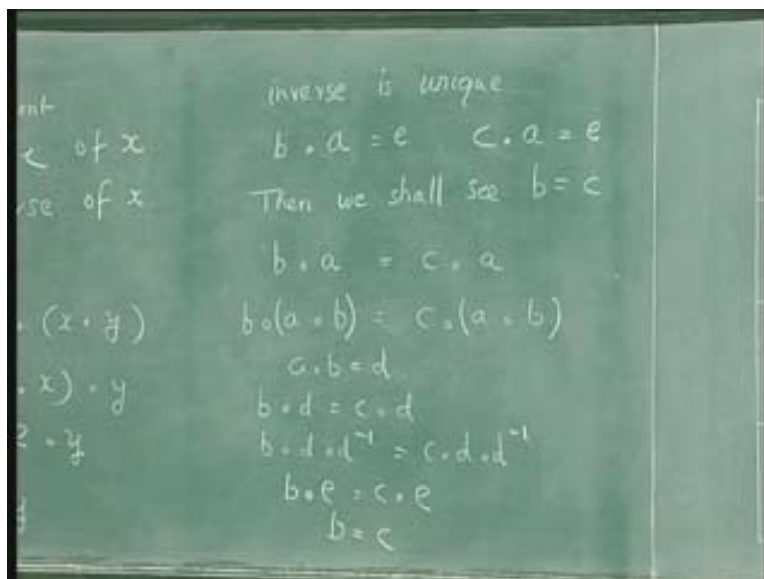 of x
of x
. (x . y)
. x) . y
. y
inverse is unique
b . a = e c . a = e
Then we shall see b = c
b . a = c . a
b . (a . b) = c . (a . b)
a . b = d
b . d = c . d
b . d . d⁻¹ = c . d . d⁻¹
b . e = c . e
b = c